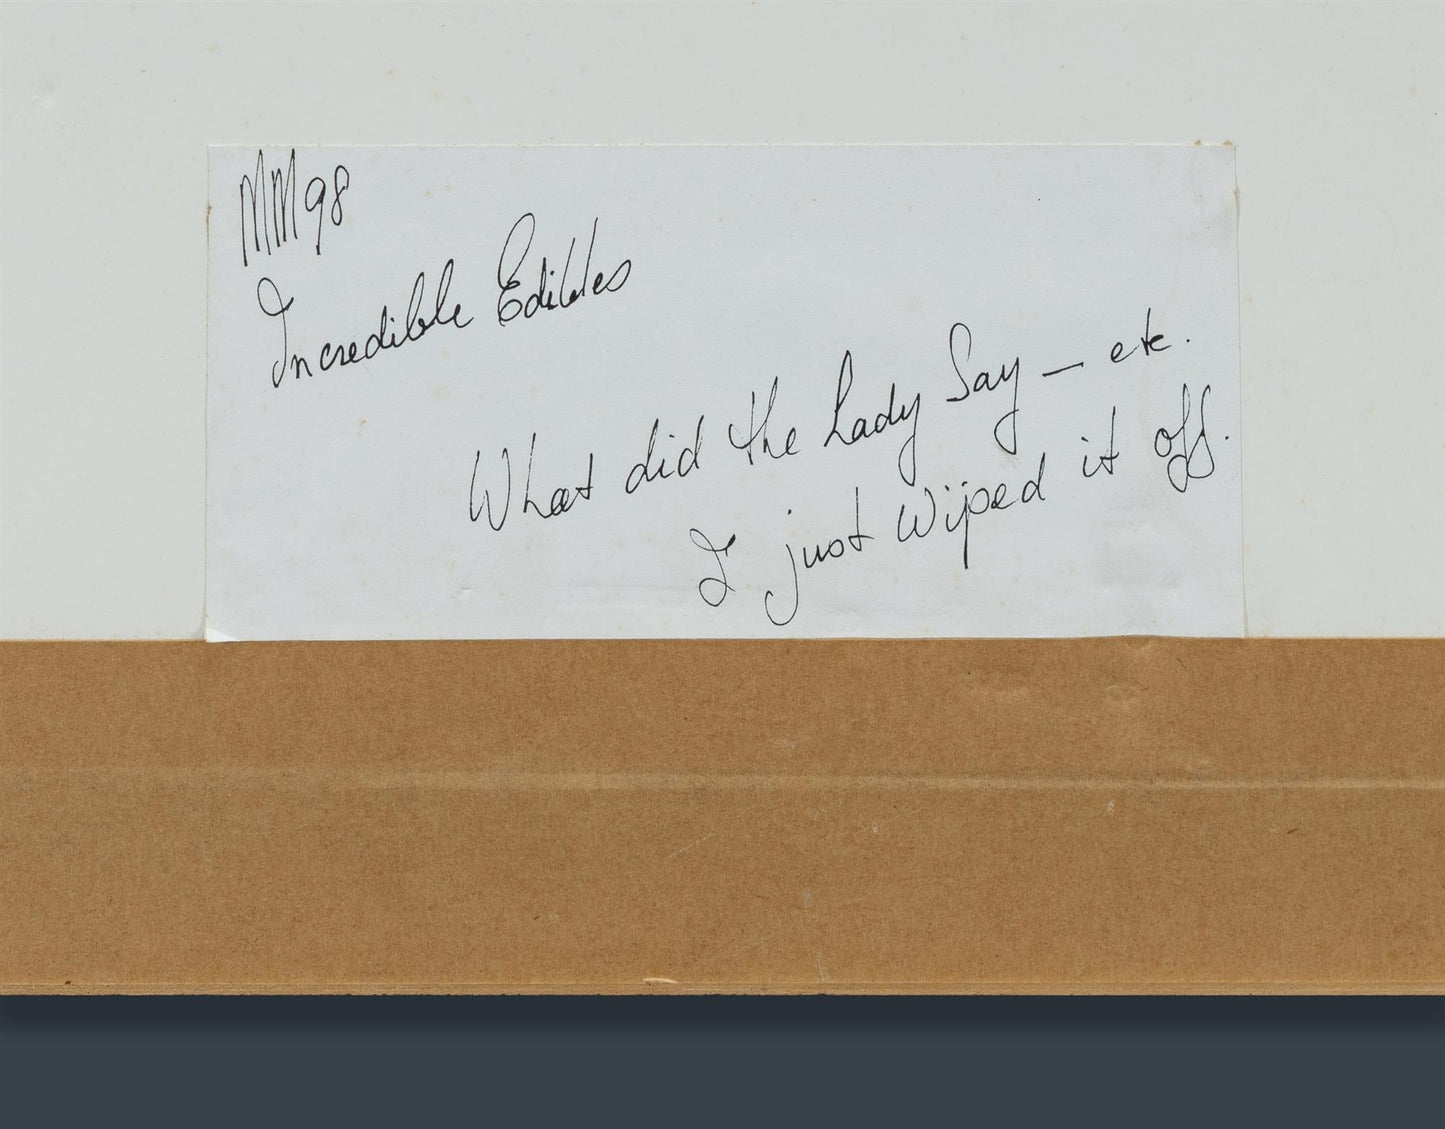 MM98
Incredible Edibles
What did the Lady Say — etc.
I just wiped it off.